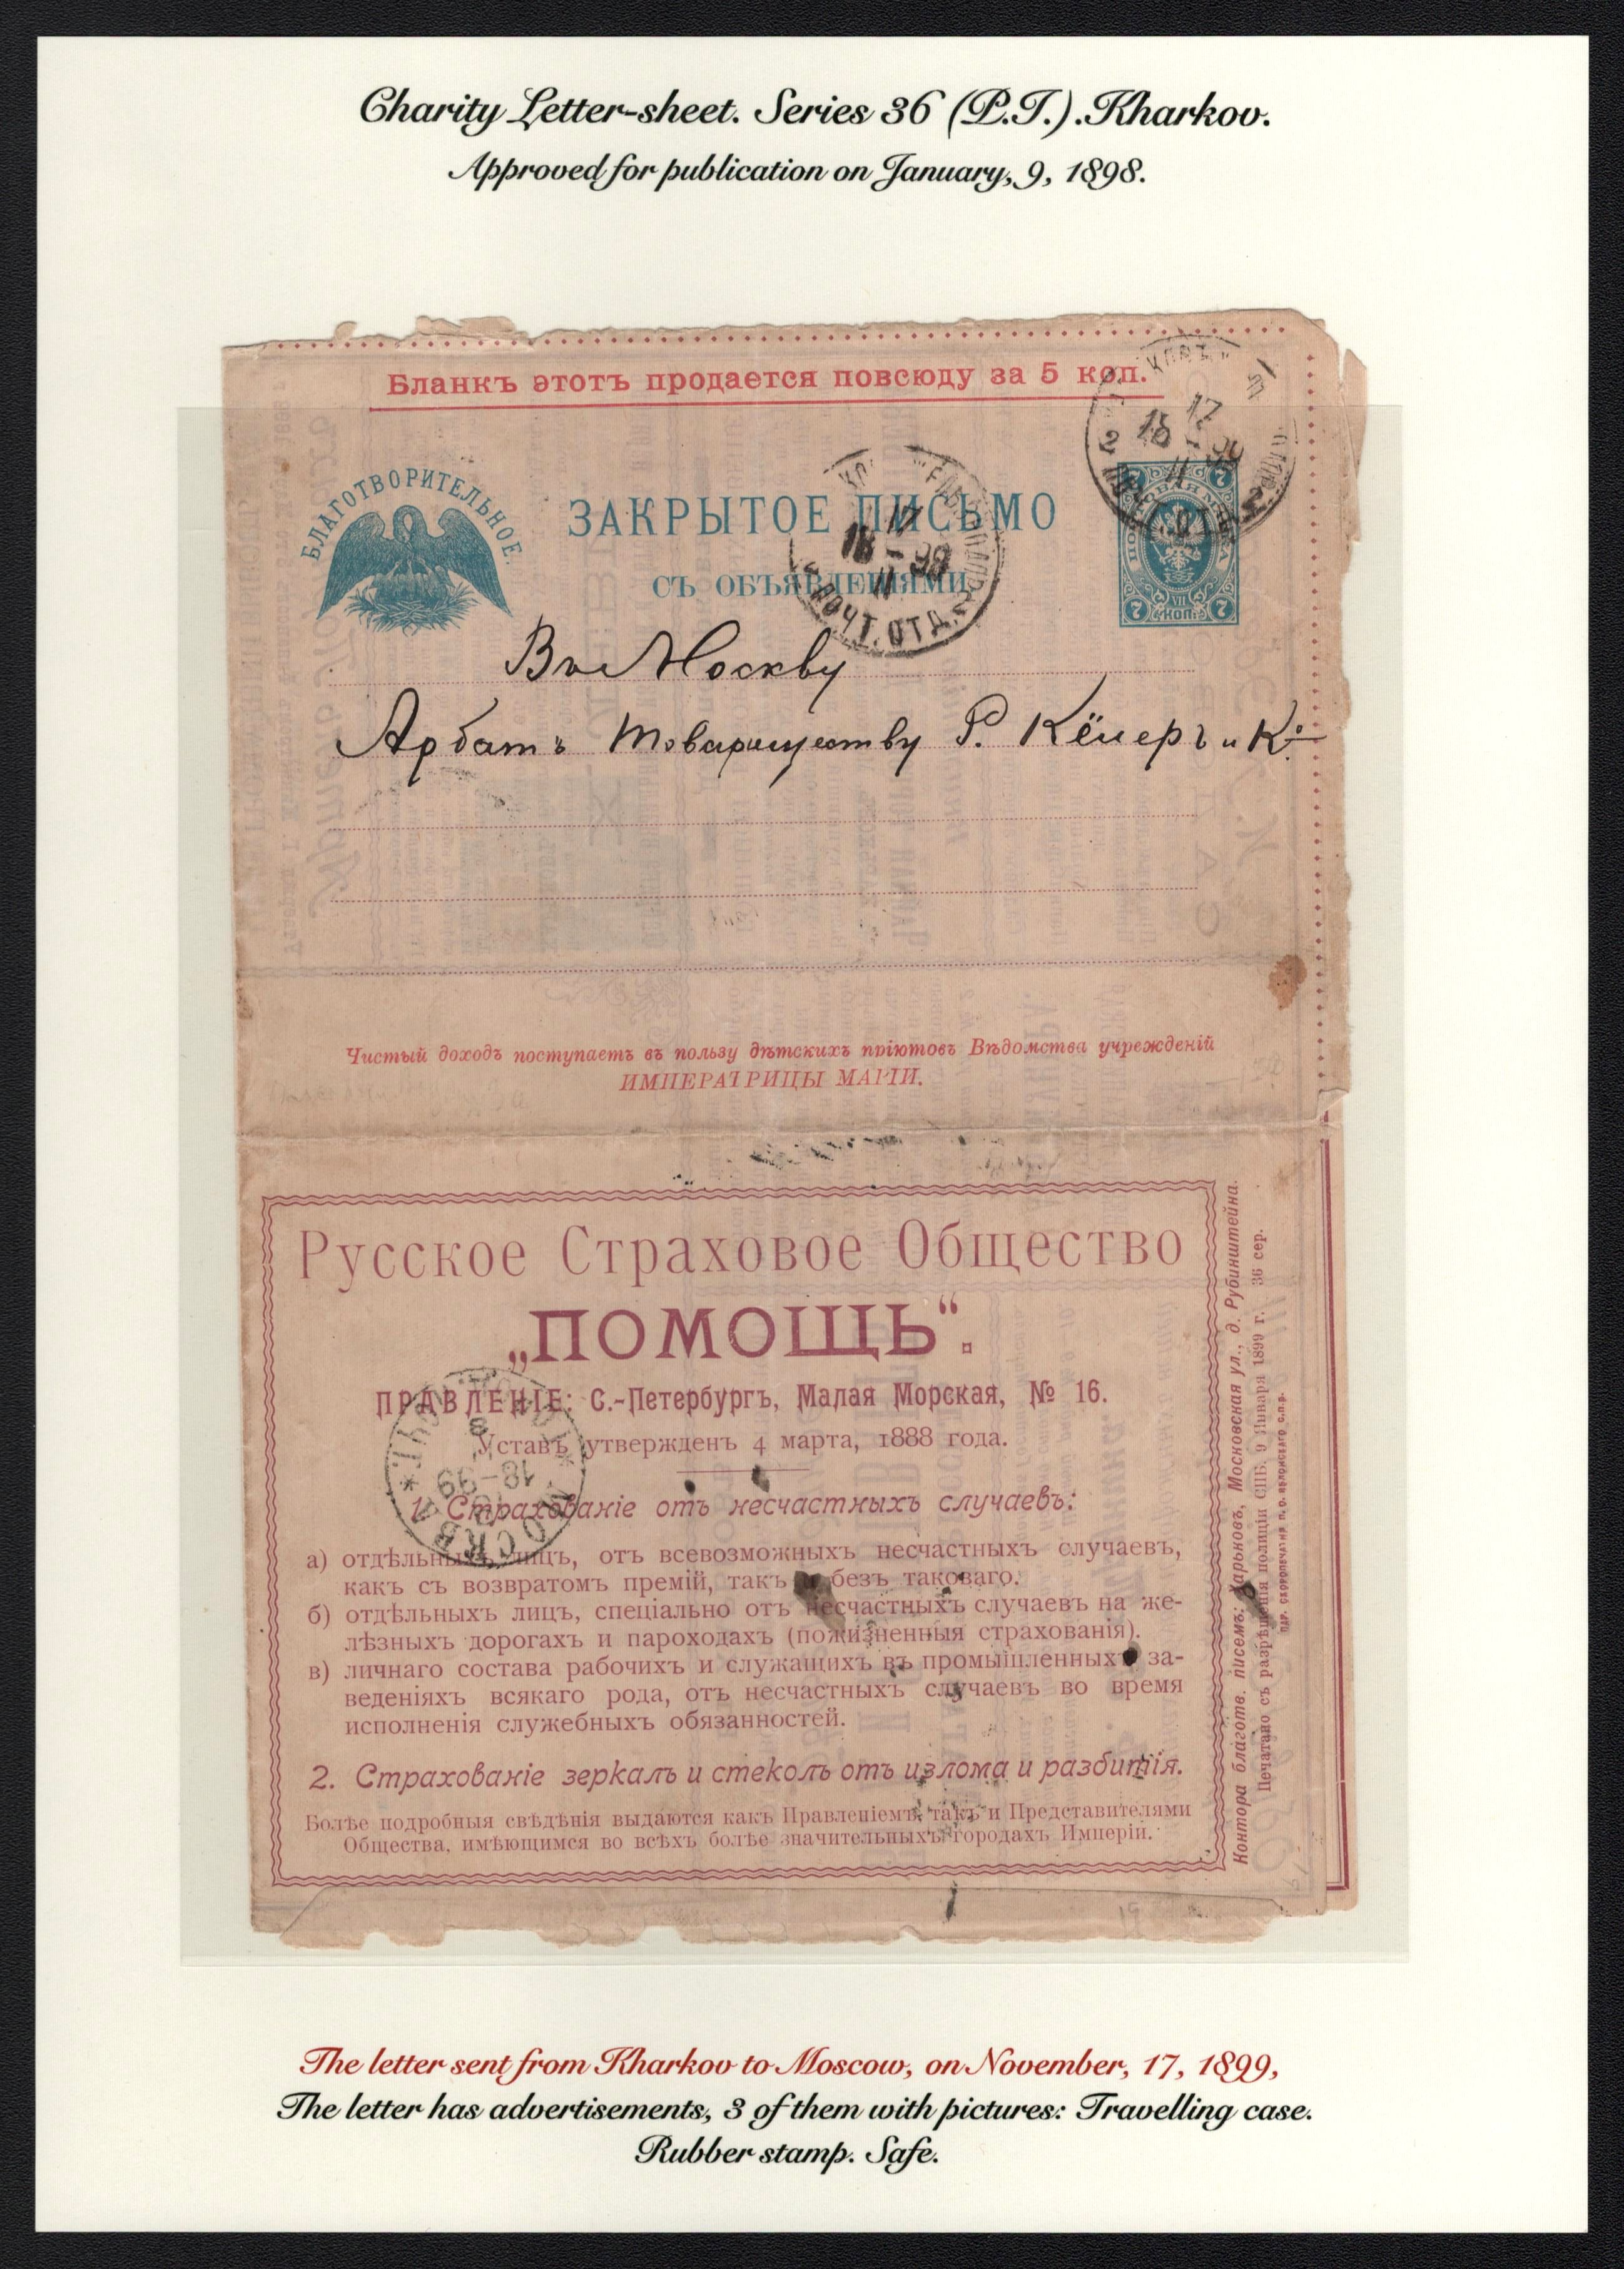 Charity Letter-sheet. Series 36 (P.T.).Kharkov.
Approved for publication on January, 9, 1898.
Бланкъ этотъ продается повсюду за 5 коп.
БЛАГОТВОРИТЕЛЬНОЕ
ЗАКРЫТОЕ ПИСЬМО
СЪ ОБЪЯВЛЕНІЯМИ
ПОЧТОВАЯ МАРКА
7 7
VII
7 КОП. 7
17
18 - 99
11
ПОЧТ. ОТД.
Въ Москву
Арбатъ Товариществу Р. Кёлеръ и Ко
Чистый доходъ поступаетъ въ пользу дѣтскихъ пріютовъ Вѣдомства учрежденій
ИМПЕРАТРИЦЫ МАРІИ.
Русское Страховое Общество
„ПОМОЩЬ“.
ПРАВЛЕНІЕ: С.-Петербургъ, Малая Морская, № 16.
Уставъ утвержденъ 4 марта, 1888 года.
МОСКВА
18-99
1. Страхованіе отъ несчастныхъ случаевъ:
а) отдѣльныхъ лицъ, отъ всевозможныхъ несчастныхъ случаевъ,
какъ съ возвратомъ премій, такъ и безъ таковаго.
б) отдѣльныхъ лицъ, спеціально отъ несчастныхъ случаевъ на же-
лѣзныхъ дорогахъ и пароходахъ (пожизненныя страхованія).
в) личнаго состава рабочихъ и служащихъ въ промышленныхъ за-
веденіяхъ всякаго рода, отъ несчастныхъ случаевъ во время
исполненія служебныхъ обязанностей.
2. Страхованіе зеркалъ и стеколъ отъ излома и разбитія.
Болѣе подробныя свѣдѣнія выдаются какъ Правленіемъ, такъ и Представителями
Общества, имѣющимся во всѣхъ болѣе значительныхъ городахъ Имперіи.
Контора благотв. писемъ: Харьковъ, Московская ул., д. Рубинштейна.
Печатано съ разрѣшенія полиціи СПБ. 9 Января 1899 г. 36 сер.
ПАР. СКОРОПЕЧАТНЯ П. О. ЯБЛОНСКАГО С.П.Б.
The letter sent from Kharkov to Moscow, on November, 17, 1899,
The letter has advertisements, 3 of them with pictures: Travelling case.
Rubber stamp. Safe.